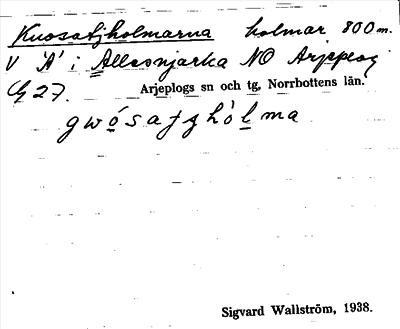 Kuosatjholmarna holmar 800 m.
V "A" i Allesnjarka NO Arjeplog
27.
Arjeplogs sn och tg, Norrbottens län.
gwósatjhòlma
Sigvard Wallström, 1938.